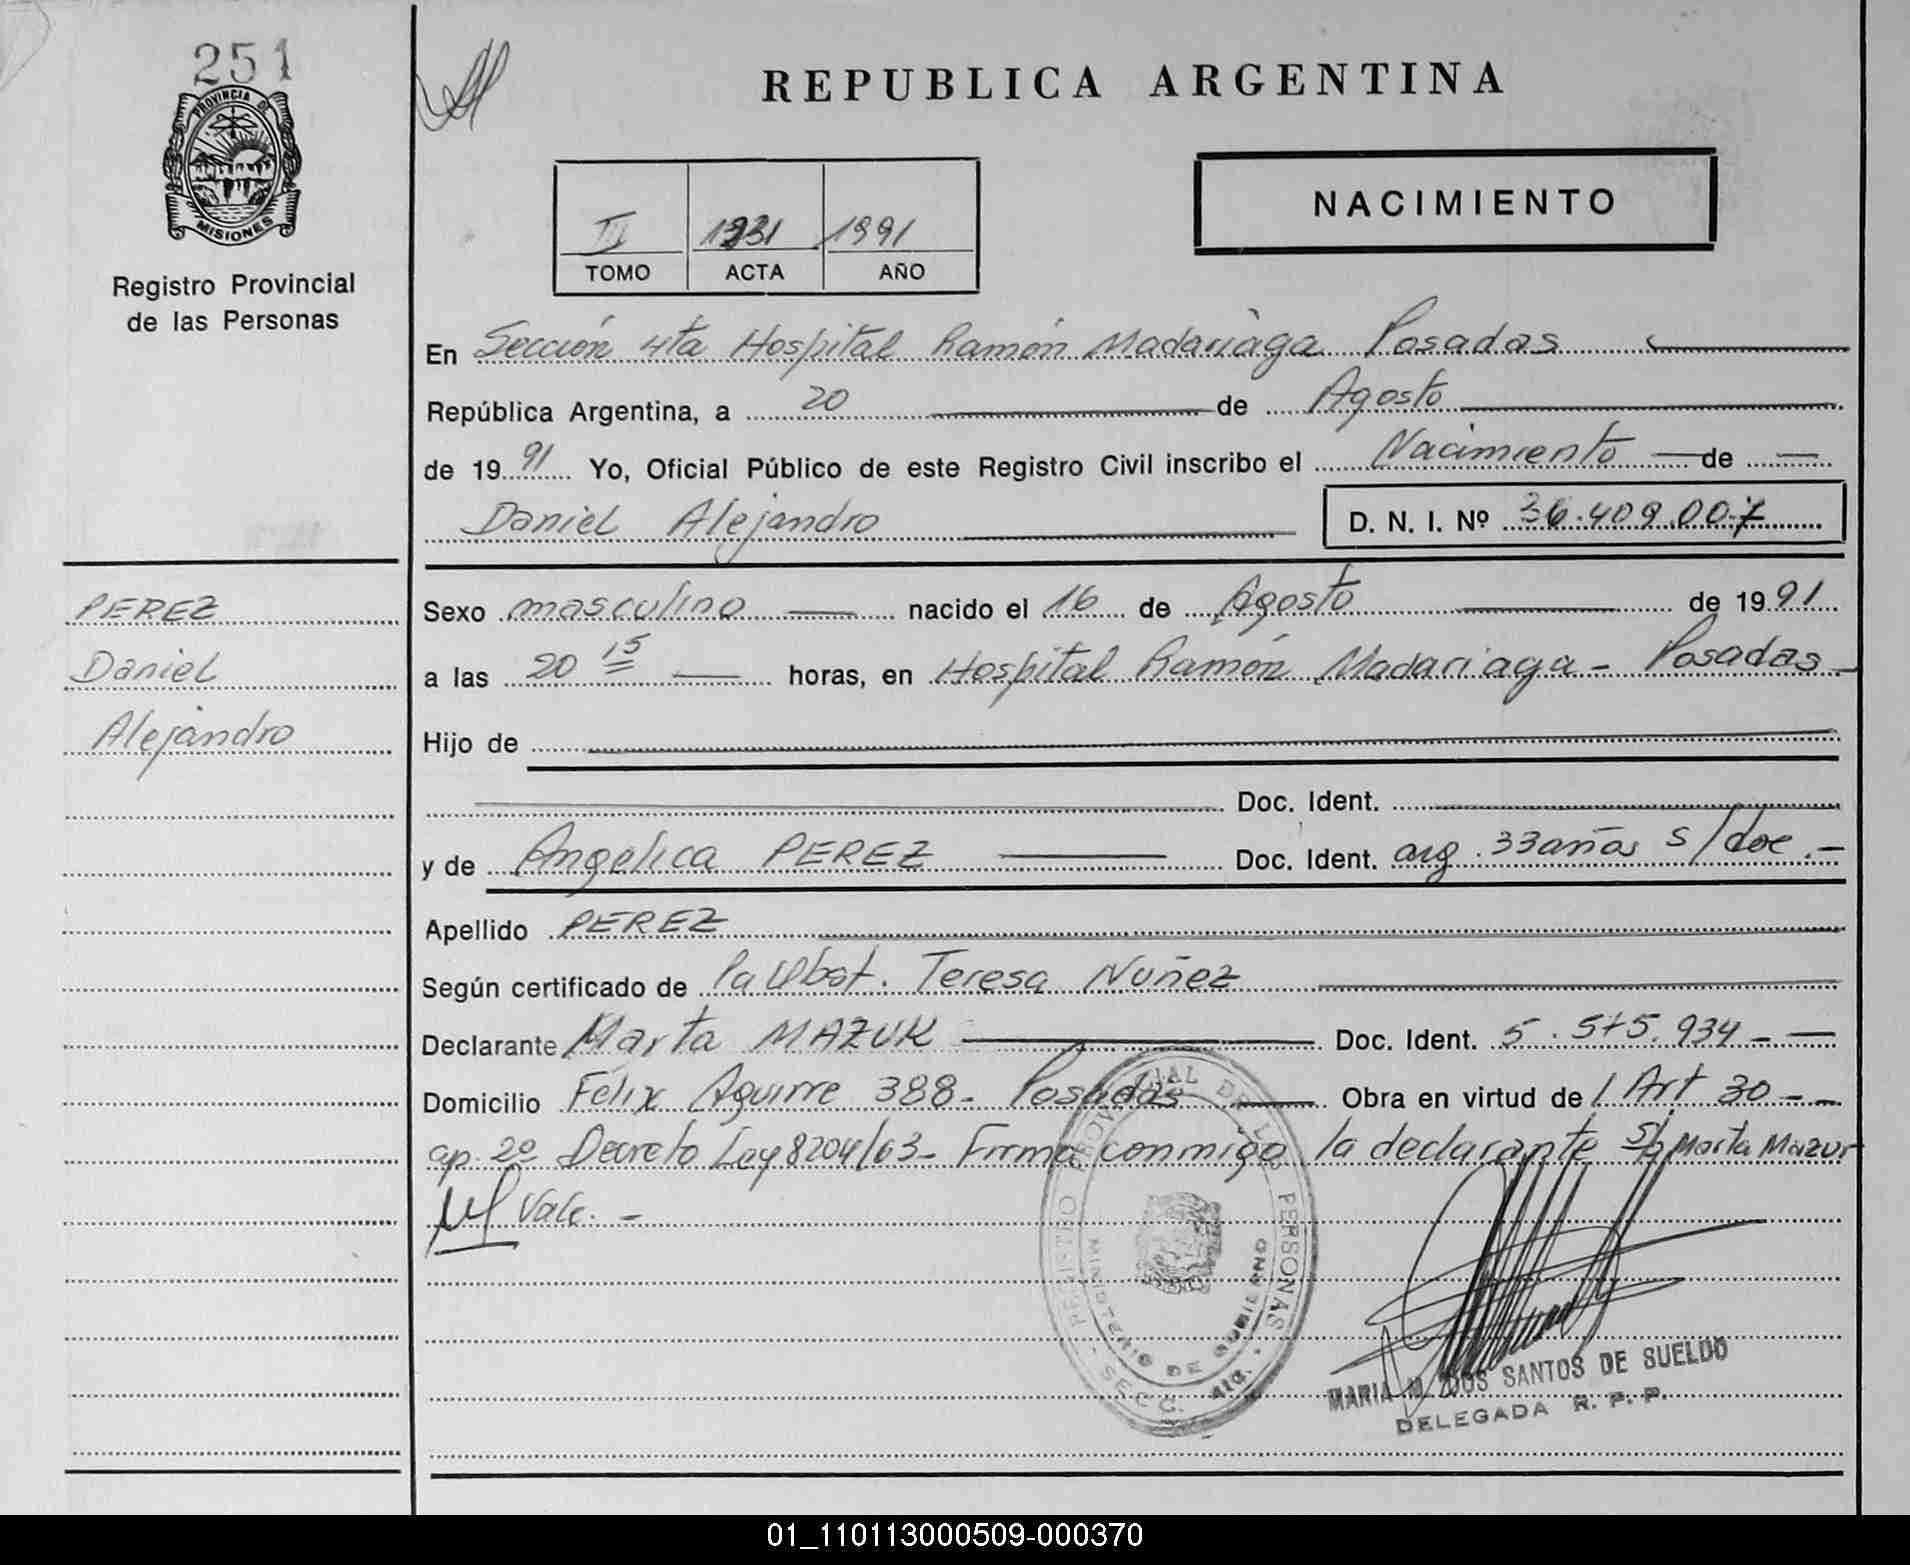 251
PROVINCIA DE
MISIONES
Registro Provincial
de las Personas
PEREZ
Daniel
Alejandro
REPUBLICA ARGENTINA
NACIMIENTO
1991
TOMO ACTA AÑO
En Sección 4ta Hospital Ramón Madariaga Posadas
República Argentina, a 20 de Agosto
de 1991 Yo, Oficial Público de este Registro Civil inscribo el Nacimiento de
Daniel Alejandro D. N. I. Nº 36.409.007
Sexo masculino nacido el 16 de Agosto de 1991
a las 20 15 horas, en Hospital Ramón Madariaga - Posadas -
Hijo de
Doc. Ident.
y de Angelica PEREZ Doc. Ident. arg. 33 años s/doc. -
Apellido PEREZ
Según certificado de Obst. Teresa Nuñez
Declarante Marta MAZUR Doc. Ident. 5.575.934 -
Domicilio Félix Aguirre 388 - Posadas Obra en virtud de l Art 30 - -
ap. 2º Decreto Ley 8204/63 - Firma conmigo la declarante Marta Mazur
Vale. -
REGISTRO PROVINCIAL DE LAS PERSONAS
MINISTERIO DE GOBIERNO
SECC. 4ta.
MARIA M. DOS SANTOS DE SUELDO
DELEGADA R. P. P.
01_110113000509-000370